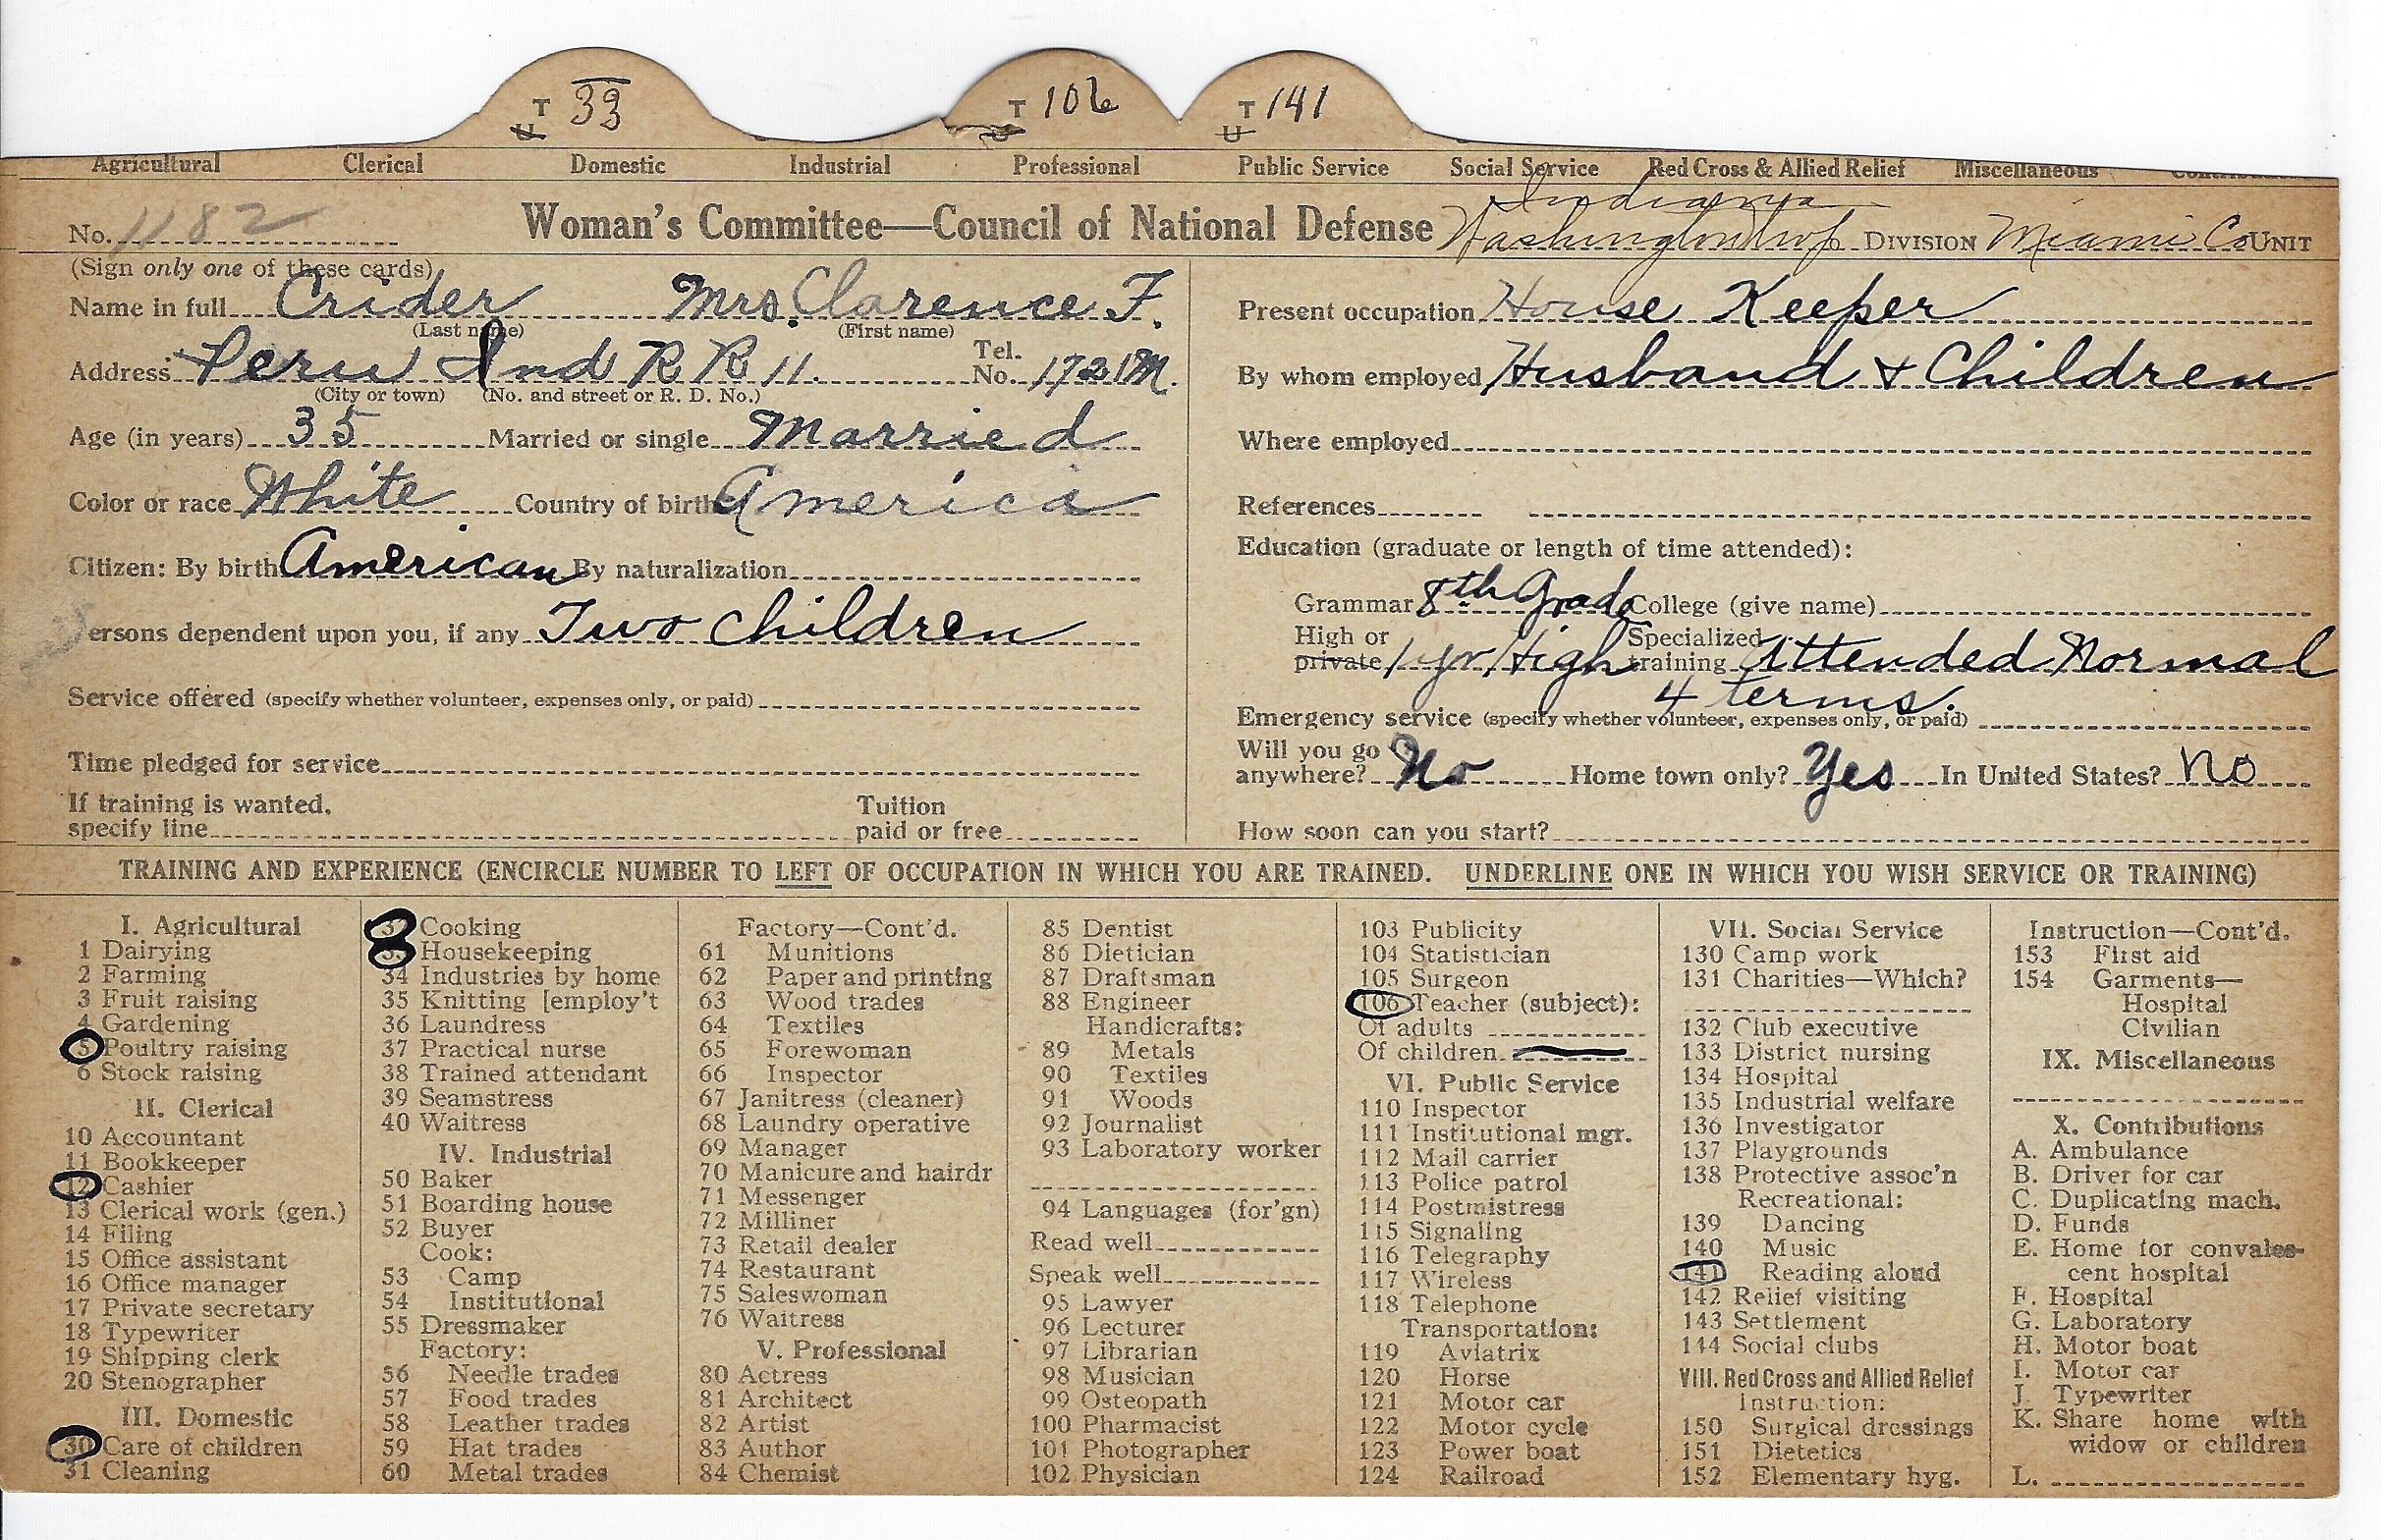 T 33 T 106 T 141
U U U
Agricultural Clerical Domestic Industrial Professional Public Service Social Service Red Cross & Allied Relief Miscellaneous
Indiana
No. 1182 Woman's Committee—Council of National Defense Washington Twp DIVISION Miami Co UNIT
(Sign only one of these cards)
Name in full Crider Mrs. Clarence F.
(Last name) (First name)
Address Peru Ind R R 11. Tel. No. 1721M.
(City or town) (No. and street or R. D. No.)
Age (in years) 35 Married or single Married
Color or race White Country of birth America
Citizen: By birth American By naturalization
Persons dependent upon you, if any Two children
Service offered (specify whether volunteer, expenses only, or paid)
Time pledged for service
If training is wanted, specify line Tuition paid or free
Present occupation House Keeper
By whom employed Husband & Children
Where employed
References
Education (graduate or length of time attended):
Grammar 8th Grade College (give name)
High or private 1 yr High Specialized training Attended Normal
4 terms.
Emergency service (specify whether volunteer, expenses only, or paid)
Will you go anywhere? No Home town only? Yes In United States? No
How soon can you start?
TRAINING AND EXPERIENCE (ENCIRCLE NUMBER TO LEFT OF OCCUPATION IN WHICH YOU ARE TRAINED. UNDERLINE ONE IN WHICH YOU WISH SERVICE OR TRAINING)
I. Agricultural
1 Dairying
2 Farming
3 Fruit raising
4 Gardening
5 Poultry raising
6 Stock raising
II. Clerical
10 Accountant
11 Bookkeeper
12 Cashier
13 Clerical work (gen.)
14 Filing
15 Office assistant
16 Office manager
17 Private secretary
18 Typewriter
19 Shipping clerk
20 Stenographer
III. Domestic
30 Care of children
31 Cleaning
32 Cooking
33 Housekeeping
34 Industries by home
35 Knitting [employ't
36 Laundress
37 Practical nurse
38 Trained attendant
39 Seamstress
40 Waitress
IV. Industrial
50 Baker
51 Boarding house
52 Buyer
Cook:
53 Camp
54 Institutional
55 Dressmaker
Factory:
56 Needle trades
57 Food trades
58 Leather trades
59 Hat trades
60 Metal trades
Factory—Cont'd.
61 Munitions
62 Paper and printing
63 Wood trades
64 Textiles
65 Forewoman
66 Inspector
67 Janitress (cleaner)
68 Laundry operative
69 Manager
70 Manicure and hairdr
71 Messenger
72 Milliner
73 Retail dealer
74 Restaurant
75 Saleswoman
76 Waitress
V. Professional
80 Actress
81 Architect
82 Artist
83 Author
84 Chemist
85 Dentist
86 Dietician
87 Draftsman
88 Engineer
Handicrafts:
89 Metals
90 Textiles
91 Woods
92 Journalist
93 Laboratory worker
94 Languages (for'gn)
Read well
Speak well
95 Lawyer
96 Lecturer
97 Librarian
98 Musician
99 Osteopath
100 Pharmacist
101 Photographer
102 Physician
103 Publicity
104 Statistician
105 Surgeon
106 Teacher (subject):
Of adults
Of children
VI. Public Service
110 Inspector
111 Institutional mgr.
112 Mail carrier
113 Police patrol
114 Postmistress
115 Signaling
116 Telegraphy
117 Wireless
118 Telephone
Transportation:
119 Aviatrix
120 Horse
121 Motor car
122 Motor cycle
123 Power boat
124 Railroad
VII. Social Service
130 Camp work
131 Charities—Which?
132 Club executive
133 District nursing
134 Hospital
135 Industrial welfare
136 Investigator
137 Playgrounds
138 Protective assoc'n
Recreational:
139 Dancing
140 Music
141 Reading aloud
142 Relief visiting
143 Settlement
144 Social clubs
VIII. Red Cross and Allied Relief
Instruction:
150 Surgical dressings
151 Dietetics
152 Elementary hyg.
Instruction—Cont'd.
153 First aid
154 Garments—
Hospital
Civilian
IX. Miscellaneous
X. Contributions
A. Ambulance
B. Driver for car
C. Duplicating mach.
D. Funds
E. Home for convales-
cent hospital
F. Hospital
G. Laboratory
H. Motor boat
I. Motor car
J. Typewriter
K. Share home with
widow or children
L.